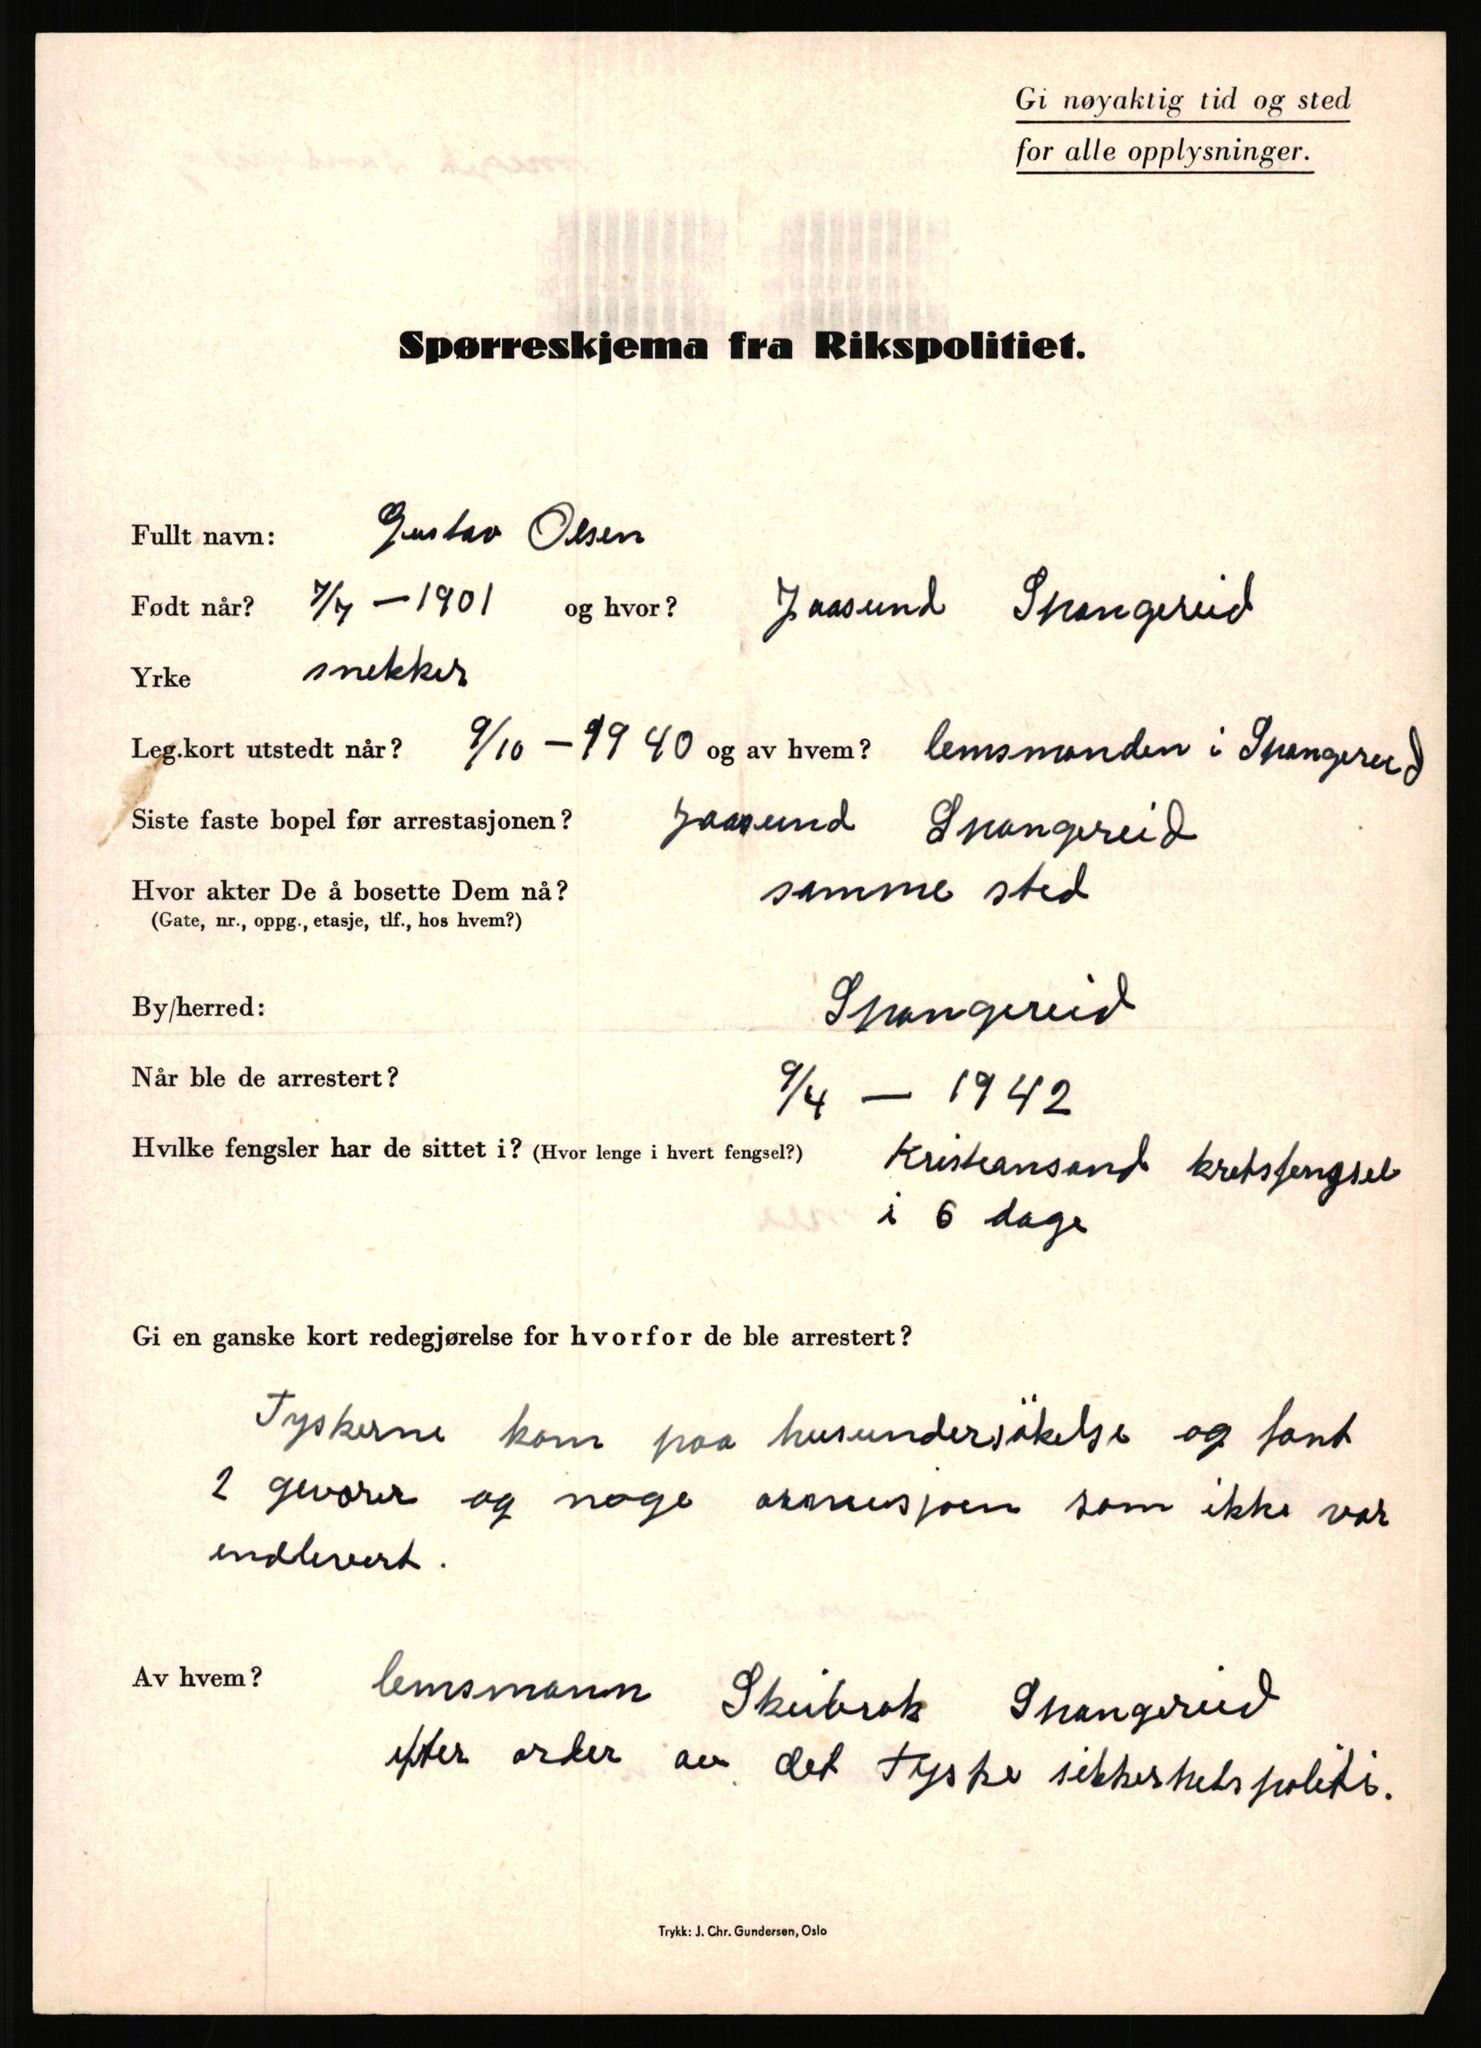 Gi nøyaktig tid og sted
for alle opplysninger.
Spørreskjema fra Rikspolitiet.
Fullt navn: Gustav Olsen
Født når? 7/7 — 1901 og hvor? Jaasund Spangereid
Yrke snekker
Leg.kort utstedt når? 9/10 — 1940 og av hvem? lensmanden i Spangereid
Siste faste bopel før arrestasjonen? Jaasund Spangereid
Hvor akter De å bosette Dem nå? samme sted
(Gate, nr., oppg., etasje, tlf., hos hvem?)
By/herred: Spangereid
Når ble de arrestert? 9/4 — 1942
Hvilke fengsler har de sittet i? (Hvor lenge i hvert fengsel?) Kristiansand kretsfengsel
i 6 dage
Gi en ganske kort redegjørelse for hvorfor de ble arrestert?
Tyskerne kom paa husundersökelse og fant
2 geværer og noge amusjoen som ikke var
indlevert.
Av hvem? lensmann Skeibrok Spangereid
efter order av det Tyske sikkerhetspoliti.
Trykk: J. Chr. Gundersen, Oslo